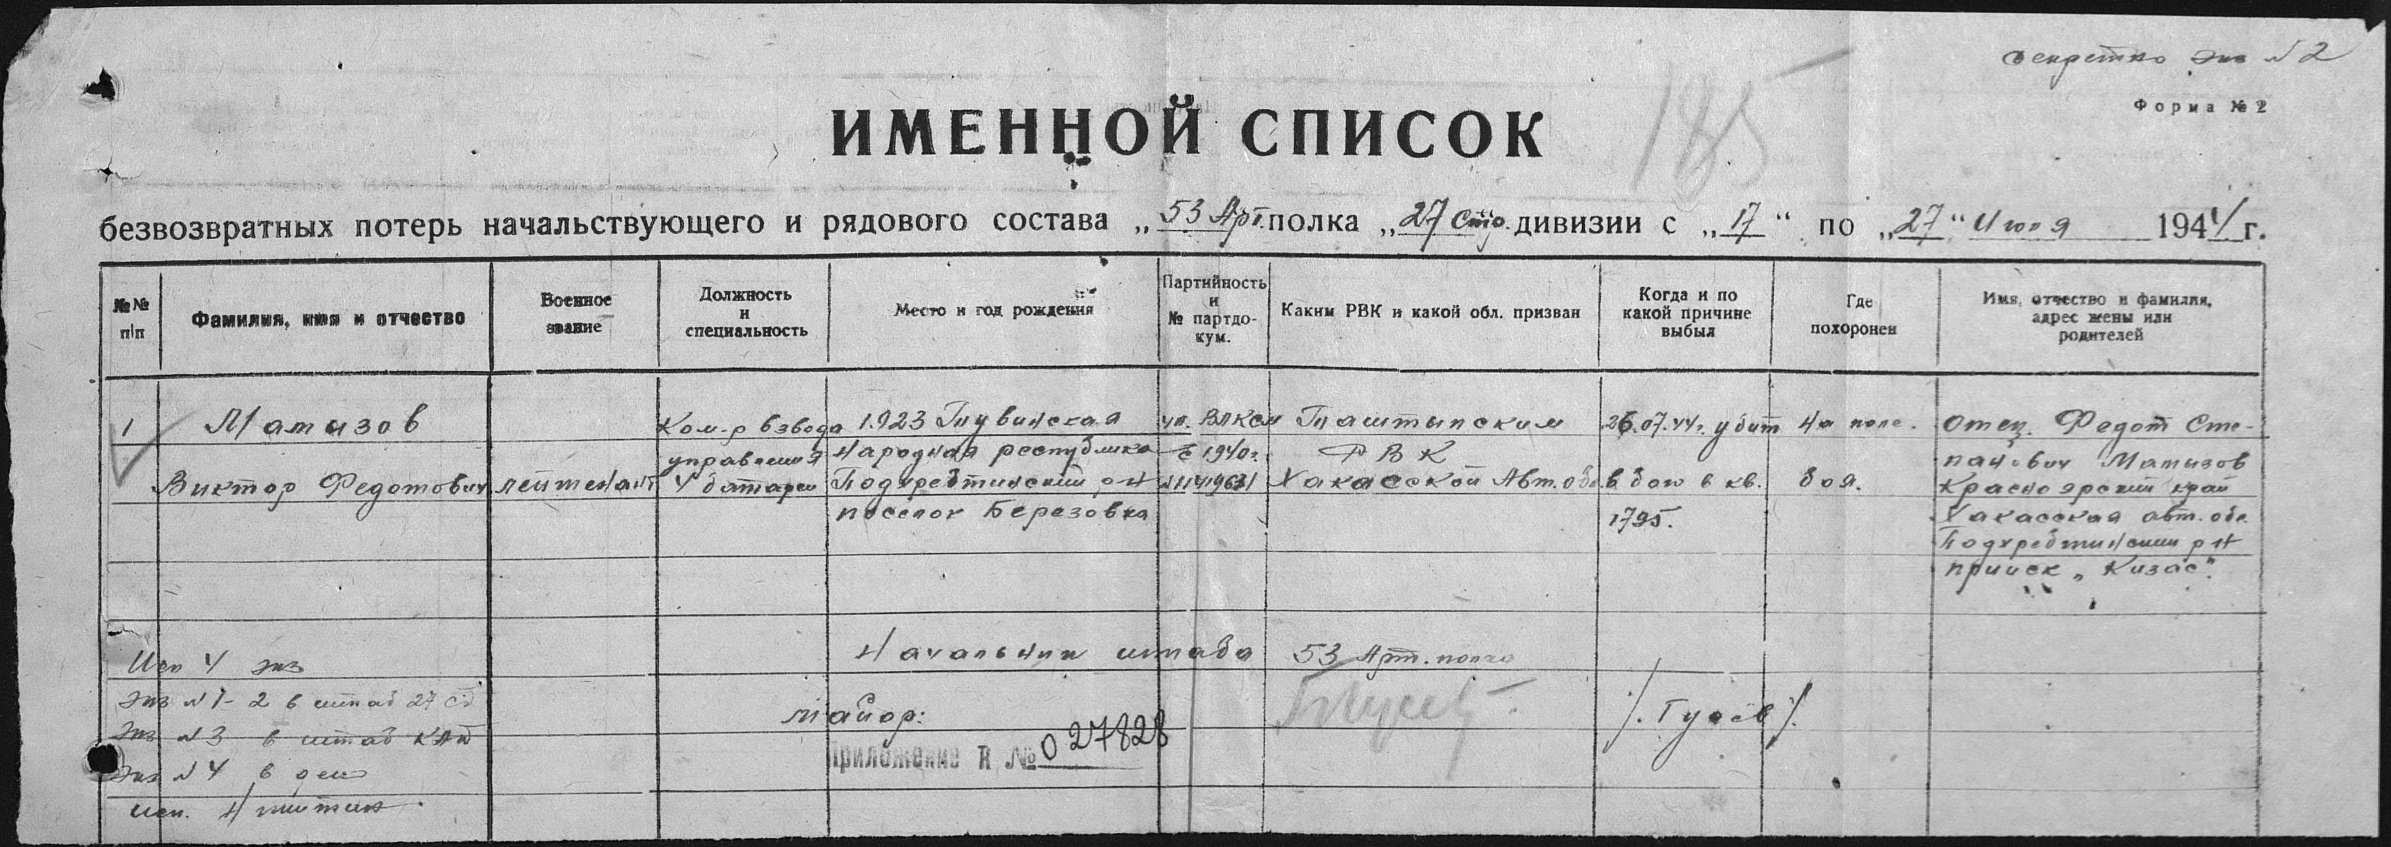 секретно экз №2
Форма № 2
185
ИМЕННОЙ СПИСОК
безвозвратных потерь начальствующего и рядового состава „53 Арт. полка „27 Стр. дивизии с „17“ по „27“ Июля 1944 г.
№№ п/п
Фамилия, имя и отчество
Военное звание
Должность и специальность
Место и год рождения
Партийность и № партдокум.
Каким РВК и какой обл. призван
Когда и по какой причине выбыл
Где похоронен
Имя, отчество и фамилия, адрес жены или родителей
1
Матызов
Виктор Федотович
лейтенант
Ком-р взвода
управления
4 батареи
1923 Тувинская
Народная республика
Подхребтинский р-н
поселок Березовка
чл. ВЛКСМ
с 1940 г.
Таштыпским
РВК
Хакасской Авт. обл.
26.07.44 г. убит
в бою в кв.
1795.
на поле
боя.
отец. Федот Сте-
панович Матызов
Красноярский край
Хакасская авт. обл.
Подхребтинский р-н
прииск „Кизас“.
Начальник штаба 53 Арт. полка
майор:
/. Гусев /.
Приложение к № 027828
Исп 4 экз
Экз №1-2 в штаб 27 сд
Экз №3 в штаб
Экз №4 в дело
исп. Никитин